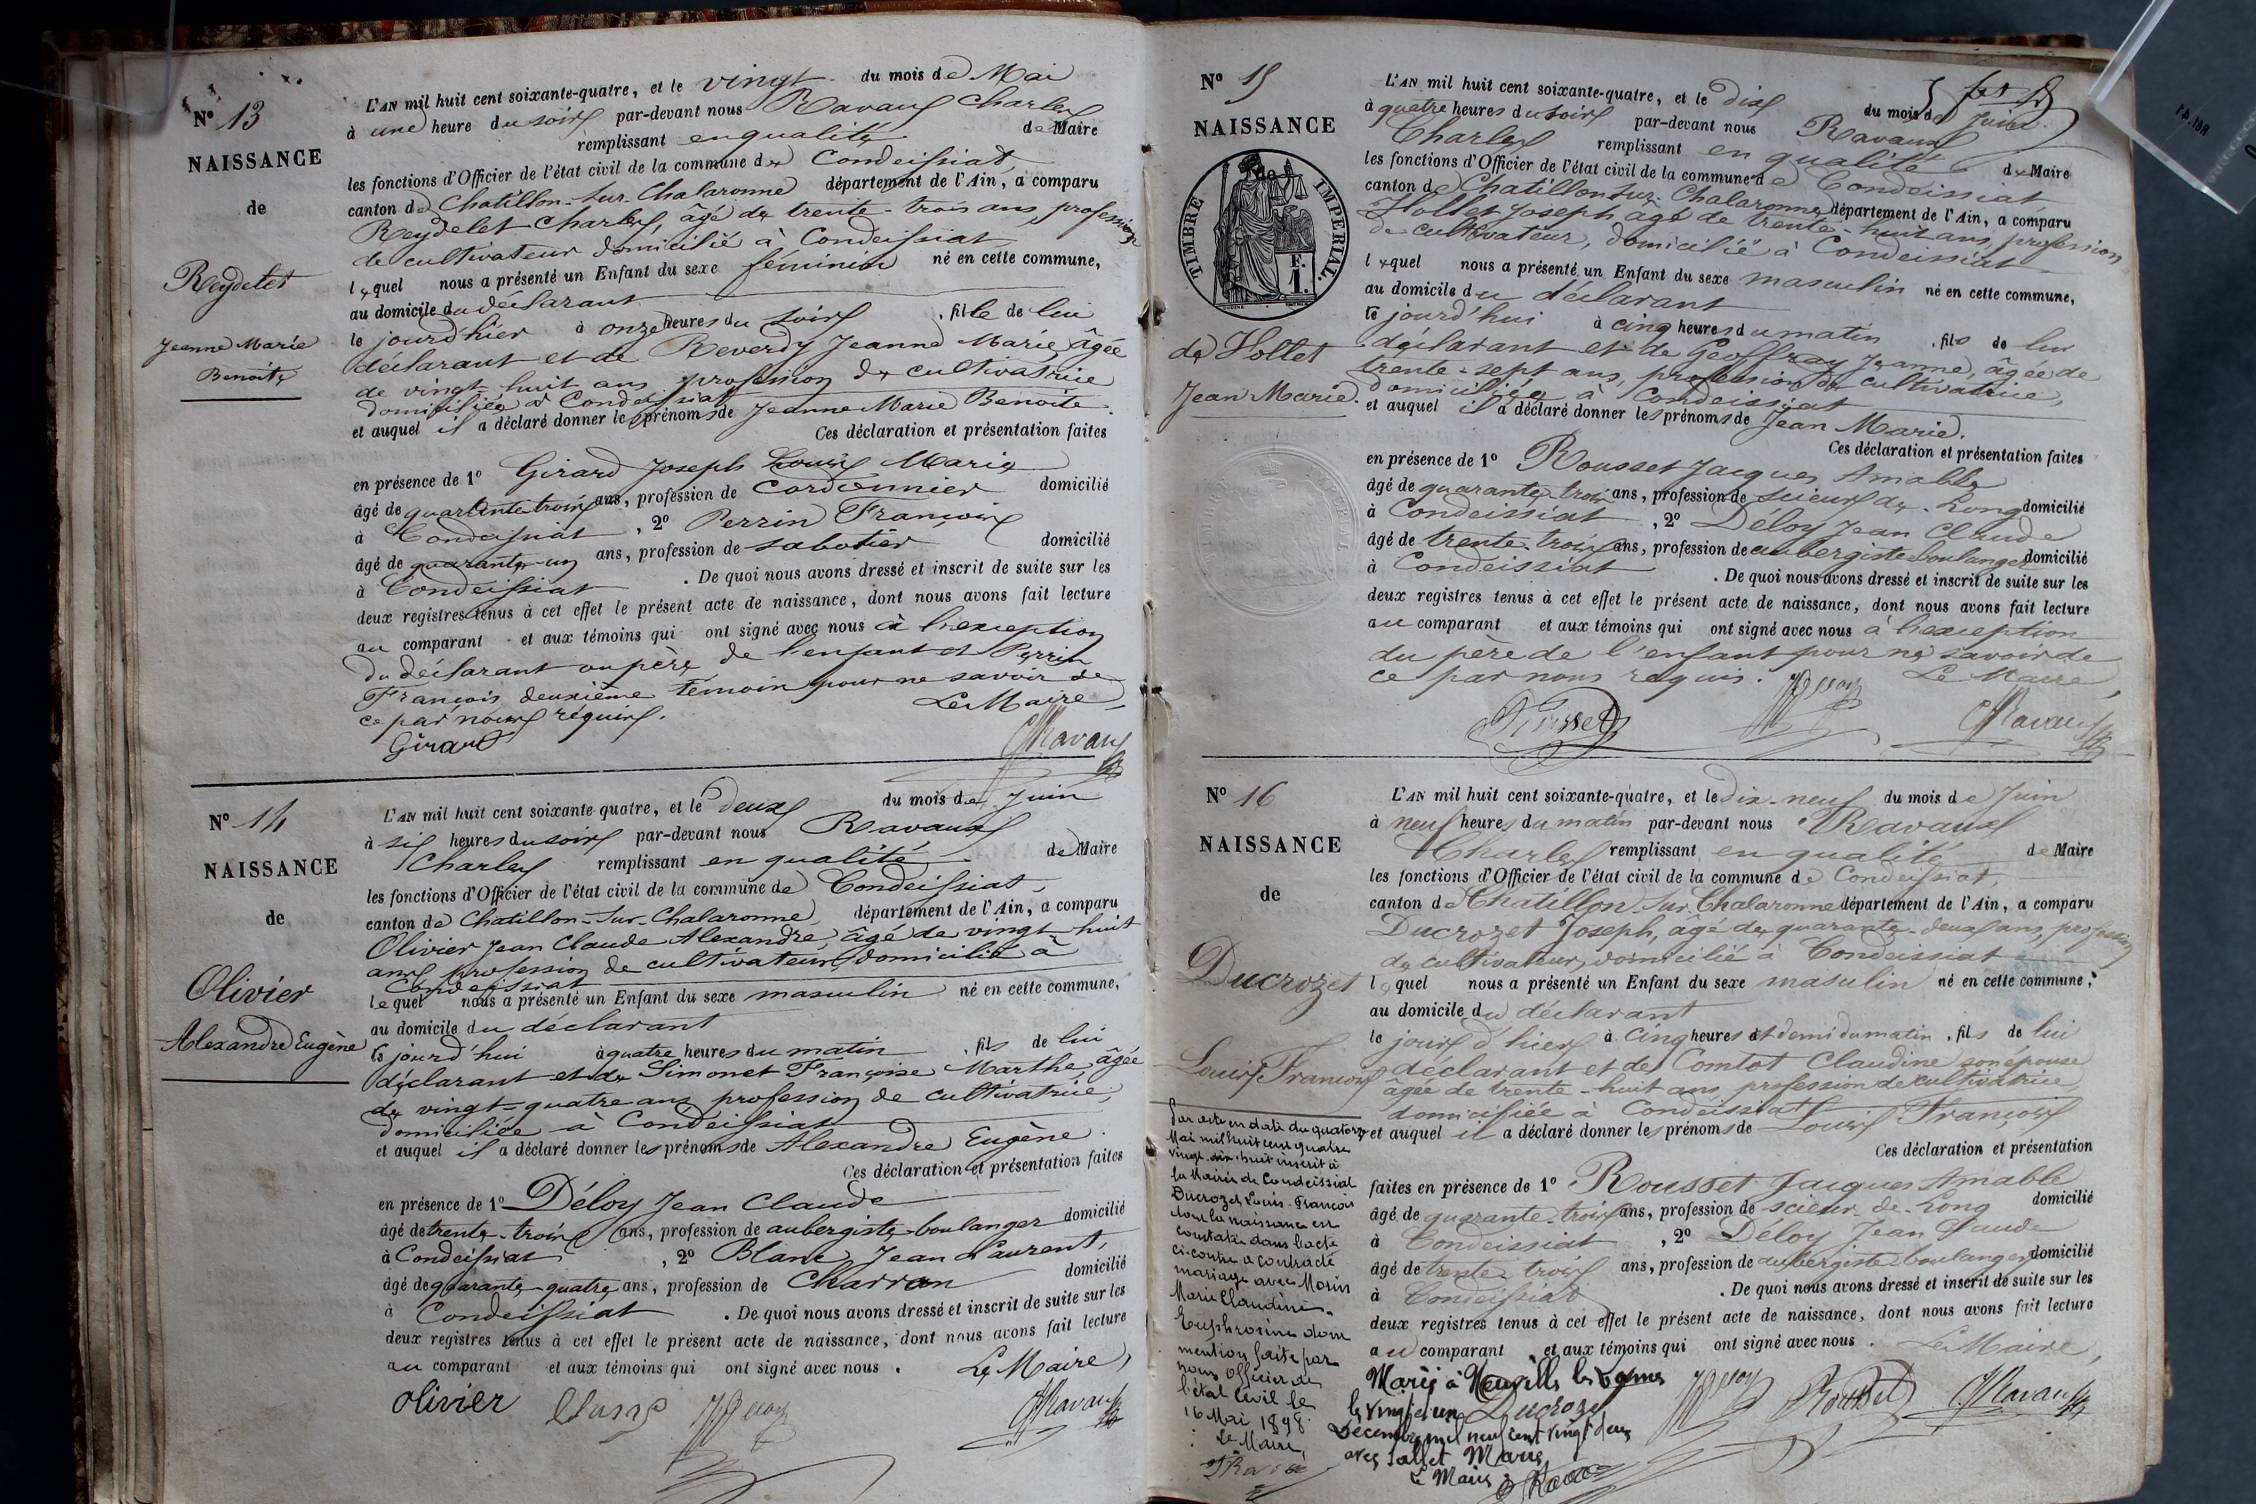 N° 13
NAISSANCE
de
Reydelet
Jeanne Marie
Benoite
L'AN mil huit cent soixante-quatre, et le vingt du mois de Mai
à une heure du soir par-devant nous Ravaux Charles
remplissant en qualité de Maire
les fonctions d'Officier de l'état civil de la commune de Condeissiat,
canton de Chatillon-sur-Chalaronne département de l'Ain, a comparu
Reydelet Charles, âgé de trente-trois ans, profession
de cultivateur domicilié à Condeissiat
lequel nous a présenté un Enfant du sexe féminin né en cette commune,
au domicile du déclarant
le jourd'hier à onze heures du soir, fille de lui
déclarant et de Reverdy Jeanne Marie, âgée
de vingt huit ans, profession de cultivatrice
domiciliée à Condeissiat
et auquel il a déclaré donner les prénoms de Jeanne Marie Benoite.
Ces déclaration et présentation faites
en présence de 1° Girard Joseph Louis Marie
âgé de quarante trois ans, profession de cordonnier domicilié
à Condeissiat, 2° Perrin François
âgé de quarante-un ans, profession de sabotier domicilié
à Condeissiat. De quoi nous avons dressé et inscrit de suite sur les
deux registres tenus à cet effet le présent acte de naissance, dont nous avons fait lecture
au comparant et aux témoins qui ont signé avec nous à l'exception
du déclarant ou père de l'enfant et Perrin
François deuxième témoin pour ne savoir de
ce par nous réquis. Le Maire,
Girard
CRavaux
N° 14
NAISSANCE
de
Olivier
Alexandre Eugène
L'AN mil huit cent soixante-quatre, et le deux du mois de Juin
à six heures du soir par-devant nous Ravaux
Charles remplissant en qualité de Maire
les fonctions d'Officier de l'état civil de la commune de Condeissiat,
canton de Chatillon-sur-Chalaronne, département de l'Ain, a comparu
Olivier Jean Claude Alexandre, âgé de vingt-huit
ans, profession de cultivateur, domicilié à
Condeissiat
lequel nous a présenté un Enfant du sexe masculin né en cette commune,
au domicile du déclarant
le jourd'hui à quatre heures du matin, fils de lui
déclarant et de Simonet Françoise Marthe, âgée
de vingt-quatre ans profession de cultivatrice,
domiciliée à Condeissiat
et auquel il a déclaré donner les prénoms de Alexandre Eugène.
Ces déclaration et présentation faites
en présence de 1° Déloy Jean Claude
âgé de trente-trois ans, profession de aubergiste-boulanger domicilié
à Condeissiat, 2° Blanc Jean Laurent,
âgé de quarante-quatre ans, profession de Charron domicilié
à Condeissiat. De quoi nous avons dressé et inscrit de suite sur les
deux registres tenus à cet effet le présent acte de naissance, dont nous avons fait lecture
au comparant et aux témoins qui ont signé avec nous. Le Maire,
olivier
CRavaux
N° 15
NAISSANCE
de
TIMBRE IMPERIAL
F.
1.
de Hollet
Jean Marie.
L'AN mil huit cent soixante-quatre, et le dix du mois de Juin
à quatre heures du soir par-devant nous Ravaux
Charles remplissant en qualité de Maire
les fonctions d'Officier de l'état civil de la commune de Condeissiat,
canton de Chatillon sur Chalaronne, département de l'Ain, a comparu
Hollet Joseph âgé de trente-huit ans, profession
de cultivateur, domicilié à Condeissiat
lequel nous a présenté un Enfant du sexe masculin né en cette commune,
au domicile du déclarant
le jourd'hui à cinq heures du matin, fils de lui
déclarant et de Geoffray Jeanne, âgée de
trente-sept ans, profession de cultivatrice,
domiciliée à Condeissiat
et auquel il a déclaré donner les prénoms de Jean Marie.
Ces déclaration et présentation faites
en présence de 1° Rousset Jacques Amable
âgé de quarante-trois ans, profession de scieur de-Long domicilié
à Condeissiat, 2° Déloy Jean Claude
âgé de trente-trois ans, profession de aubergiste boulanger domicilié
à Condeissiat. De quoi nous avons dressé et inscrit de suite sur les
deux registres tenus à cet effet le présent acte de naissance, dont nous avons fait lecture
au comparant et aux témoins qui ont signé avec nous à l'exception
du père de l'enfant pour ne savoir de
ce par nous requis. Le Maire,
Rousset
CRavaux
N° 16
NAISSANCE
de
Ducrozet
Louis François
L'AN mil huit cent soixante-quatre, et le dix-neuf du mois de Juin
à neuf heures du matin par-devant nous Ravaux
Charles remplissant en qualité de Maire
les fonctions d'Officier de l'état civil de la commune de Condeissiat,
canton de Chatillon sur Chalaronne département de l'Ain, a comparu
Ducrozet Joseph, âgé de quarante-deux ans, profession
de cultivateur, domicilié à Condeissiat
lequel nous a présenté un Enfant du sexe masulin né en cette commune,
au domicile du déclarant
le jour d'hier à cinq heures et demi du matin, fils de lui
déclarant et de Comtot Claudine son épouse
âgée de trente-huit ans, profession de cultivatrice,
domiciliée à Condeissiat
et auquel il a déclaré donner les prénoms de Louis François
Ces déclaration et présentation
faites en présence de 1° Rousset Jacques Amable
âgé de quarante-trois ans, profession de scieur-de-Long domicilié
à Condeissiat, 2° Déloy Jean Claude
âgé de trente-trois ans, profession de aubergiste boulanger domicilié
à Condeissiat. De quoi nous avons dressé et inscrit de suite sur les
deux registres tenus à cet effet le présent acte de naissance, dont nous avons fait lecture
au comparant et aux témoins qui ont signé avec nous. Le Maire,
Rousset
CRavaux
Par acte en date du quatorze
Mai mil huit cent quatre
vingt dix-huit inscrit à
la Mairie de Condeissiat
Ducrozet Louis-François
dont la naissance est
constatée dans l'acte
ci-contre a contracté
mariage avec Morin
Marie Claudine
Euphrosine dont
mention faite par
nous Officier de
l'état civil le
16 Mai 1898.
Le Maire,
Marié à Neuville les Dames
le vingt et un Ducrozet
Décembre mil neuf cent vingt deux
avec Sallet Marie
Le Maire